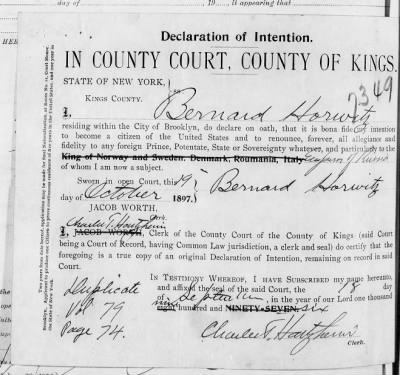 day of 19 , It appearing that
HERE
Declaration of Intention.
IN COUNTY COURT, COUNTY OF KINGS.
STATE OF NEW YORK,
KINGS COUNTY.
2349
I, Bernard Horwitz
residing within the City of Brooklyn, do declare on oath, that it is bona fide my intention
to become a citizen of the United States and to renounce, forever, all allegiance and
fidelity to any foreign Prince, Potentate, State or Sovereignty whatever, and particularly to the
King of Norway and Sweden. Denmark, Roumania, Italy Emperor of Russia
of whom I am now a subject.
Sworn in open Court, this 19
day of October 1897.
Bernard Horwitz
JACOB WORTH,
Charles T. Hartzheim
I, JACOB WORTH, Clerk of the County Court of the County of Kings (said Court
being a Court of Record, having Common Law jurisdiction, a clerk and seal) do certify that the
foregoing is a true copy of an original Declaration of Intention, remaining on record in said
Court.
IN TESTIMONY WHEREOF, I HAVE SUBSCRIBED my name hereunto,
and affixed the seal of the said Court, the 18 day
of September, in the year of our Lord one thousand
nine
eight hundred and NINETY-SEVEN. six
Charles T. Hartzheim
Clerk.
Duplicate
Vol 79
Page 74.